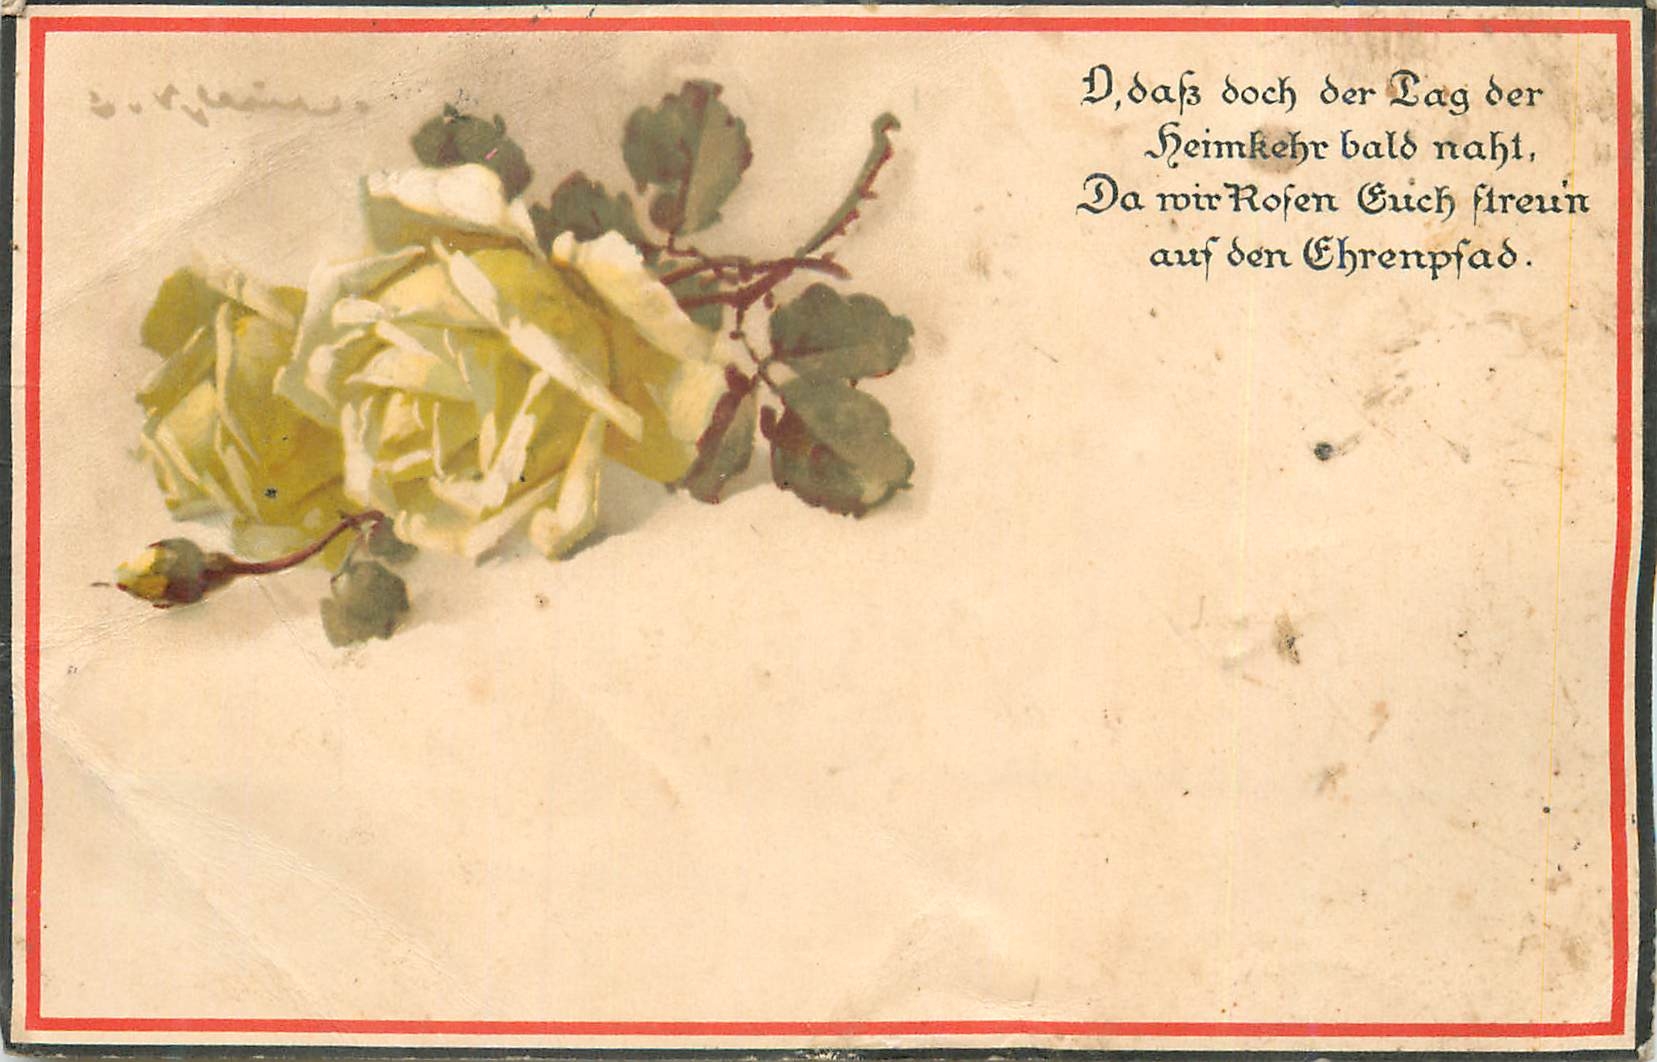 O, daß doch der Tag der
Heimkehr bald naht,
Da wir Rosen Euch streu'n
auf den Ehrenpfad.